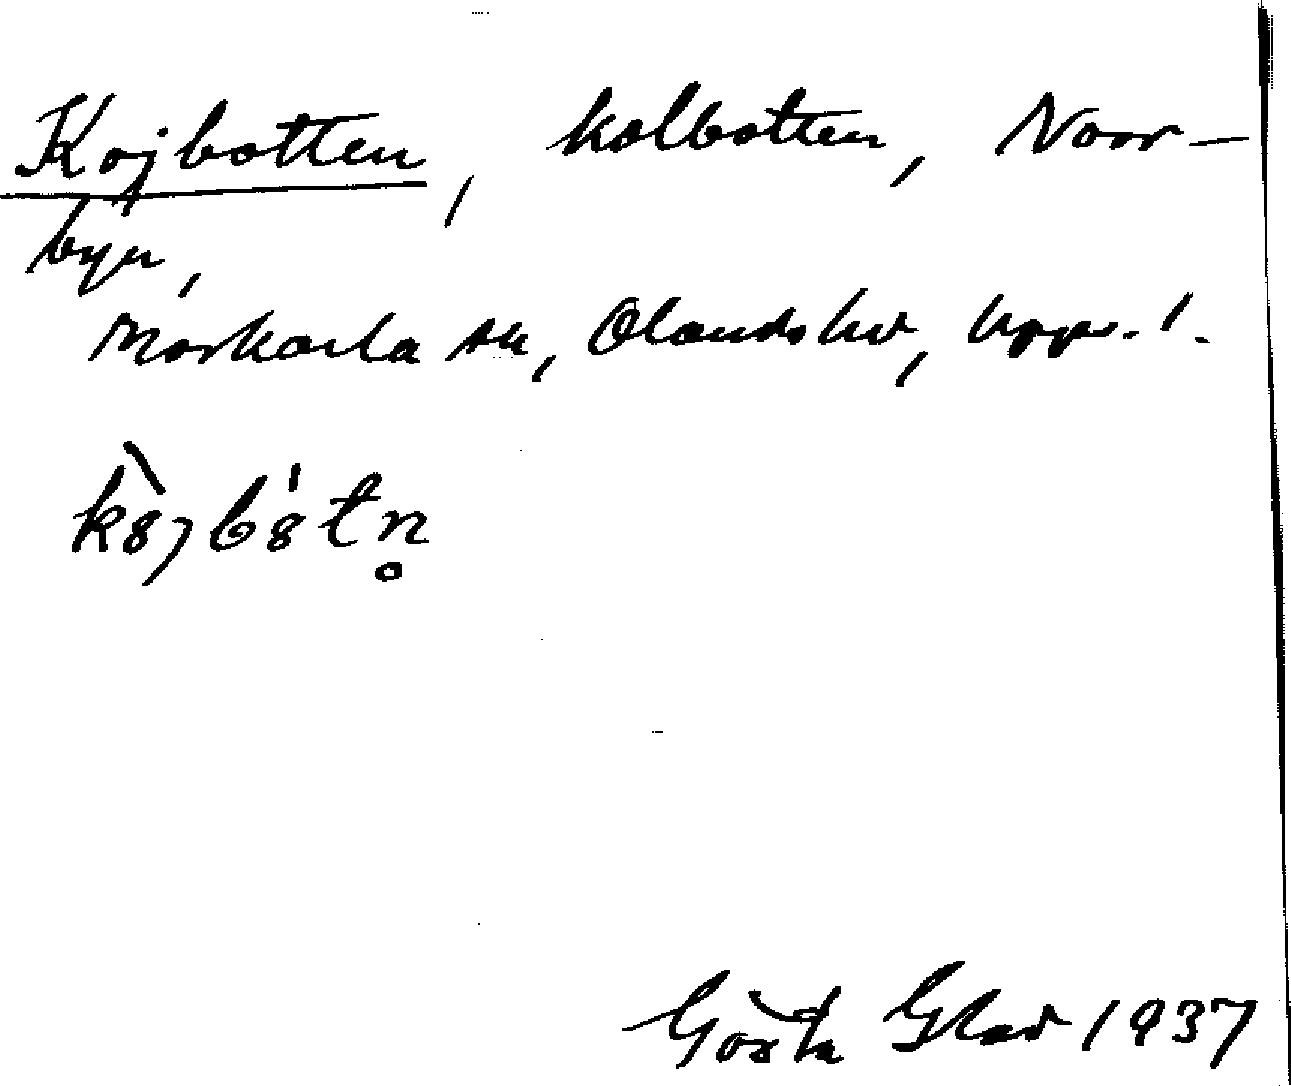 Kojbotten, kolbotten, Norr-
byn,
Morkarla sn, Olands hd, Uppl.
kȯjbȯtn̥
Gösta Glad 1937